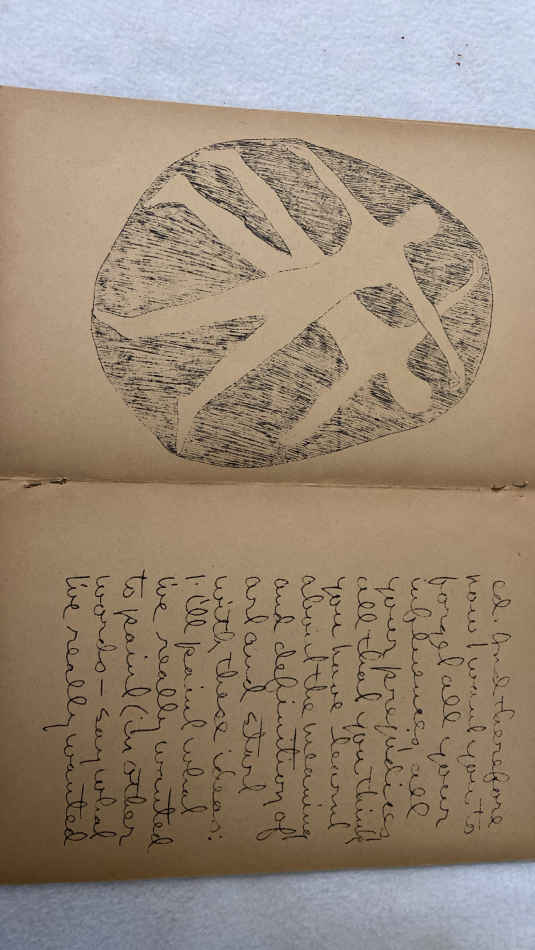 ed. And therefore
now I want you to
forget all your
influences, all
your prejudices
all that you think
you have learnt
about the meaning
and definition of
art and start
with these ideas:
I'll paint what
I've really wanted
to paint (in other
words – say what
I've really wanted